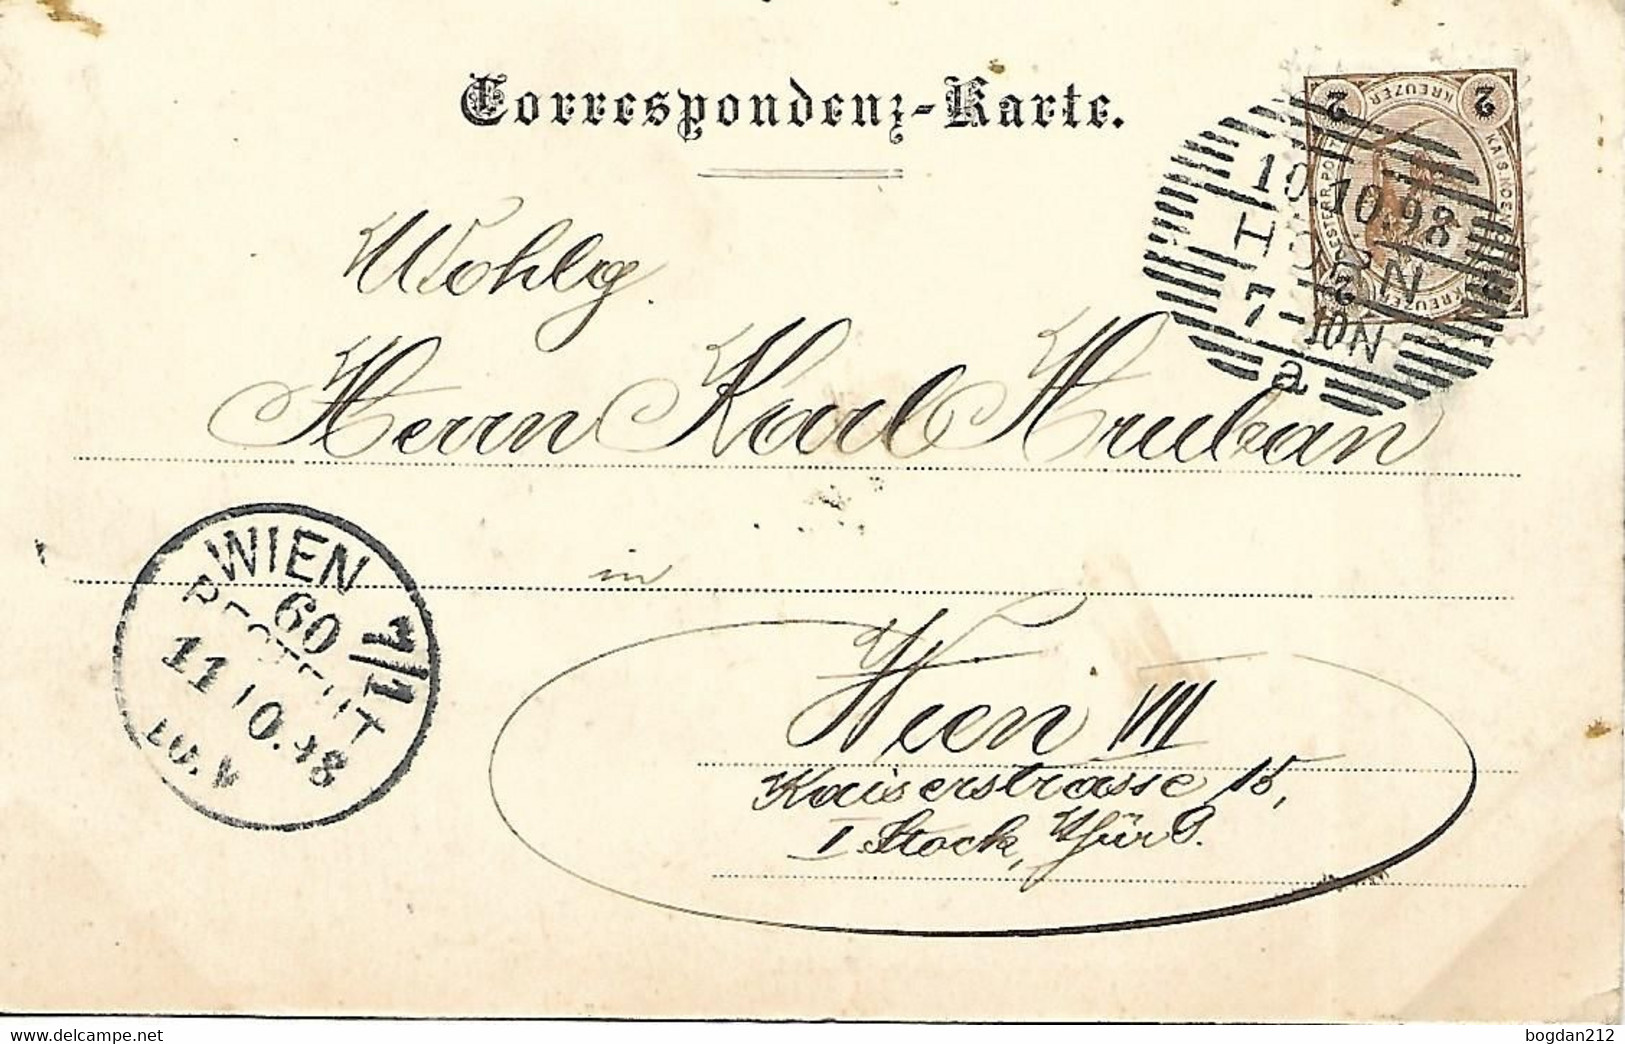 Correspondenz-Karte.
2 KREUZER 2
KAIS. KÖN
ESTERR. POST
2 KREUZER
10.10.98
7-10N
a
Wohlg.
Herrn Karl Hruban
in
WIEN
7/1
60
11 10.98
10.V
Wien VII
Kaiserstrasse 15,
I. Stock, Thür 9.
www.delcampe.net
bogdan212